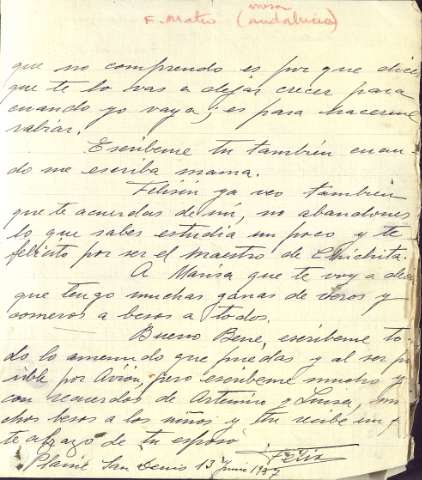 mora
F. Mateo (andalucia)
que no comprendo es por que dice
que te lo vas a dejar crecer para
cuando yo vaya; es para hacerme
rabiar.
Escribeme tu también cuan-
do me escriba mama.
Felisin ya veo también
que te acuerdas de mi, no abandones
lo que sabes estudia un poco y te
felicito por ser el maestro de Chichita.
A Marisa que te voy a
que tengo muchas ganas de veros y
comeros a besos a todos.
Bueno Bene, escribeme to-
do lo amenudo que puedas y al ser po
sible por Avión, pero escribeme mucho y
con recuerdos de Artemio y Luisa, mu
chos besos a los niños y tu recibe un f
te abrazo de tu esposo
Felix
Plaine San Denis 13 Junio 1957